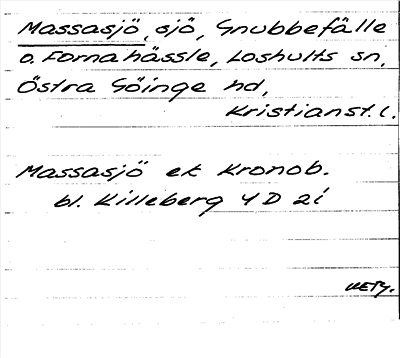 Massasjö, sjö, Gnubbefälle
o. Fornahässle, Loshults sn,
Östra Göinge hd,
Kristianst. l.
Massasjö ek Kronob.
bl. Killeberg 4D 2i